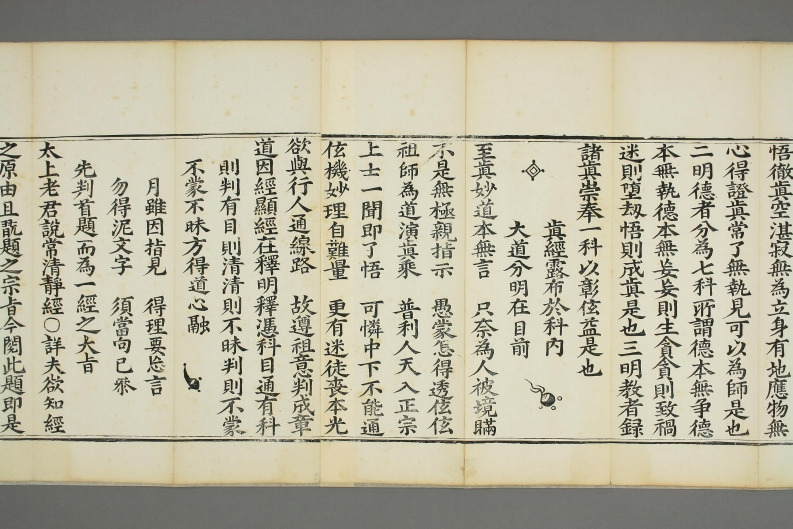 悟徹眞空湛寂無為立身有地應物無
心得證眞常了無執見可以為師是也
二明德者分為七科所謂德本無爭德
本無執德本無妄妄則生貪貪則致禍
迷則墮劫悟則成眞是也三明教者録
諸眞崇奉一科以彰伭益是也
眞經露布於科內
大道分明在目前
至眞妙道本無言 只奈為人被境瞞
不是無極親指示 愚蒙怎得透伭伭
祖師為道演眞乘 普利人天入正宗
上士一聞即了悟 可憐中下不能通
伭機妙理自難量 更有迷徒丧本光
欲與行人通線路 故遵祖意判成章
道因經顯經在釋明釋憑科目通有科
則判有目則清清則不昧判則不蒙
不蒙不昧方得道心融
月雖因指見 得理要忘言
勿得泥文字 須當向己叅
先判首題而為一經之大㫖
太上老君說常清靜經〇詳夫欲知經
之原由且翫題之宗㫖今閱此題即是